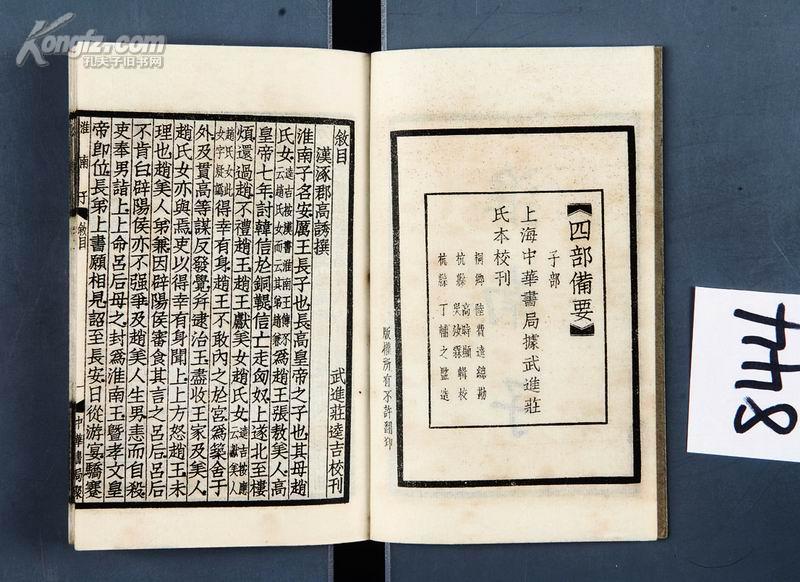 Kongfz.com
孔夫子旧书网
《四部備要》
子部
上海中華書局據武進莊
氏本校刊
桐鄉 陸費逵總勘
杭縣 高時顯 吳汝霖輯校
杭縣 丁輔之監造
版權所有不許翻印
敘目
漢涿郡高誘撰
武進莊逵吉校刊
淮南子名安厲王長子也長高皇帝之子也其母趙
氏女逵吉按漢書淮南王傳不云趙氏女而云其弟趙兼為趙王張敖美人高
皇帝七年討韓信於銅鞮信亡走匈奴上遂北至樓
煩還過趙不禮趙王趙王獻美女趙氏女逵吉按應云獻美人
趙氏女此女字疑譌得幸有身趙王不敢內之於宮為築舍于
外及貫高等謀反發覺并逮治王盡收王家及美人
趙氏女亦與焉吏以得幸有身聞上上方怒趙王未
理也趙美人弟兼因辟陽侯審食其言之呂后呂后
不肯白辟陽侯亦不强爭及趙美人生男恚而自殺
吏奉男詣上上命呂后母之封為淮南王暨孝文皇
帝即位長弟上書願相見詔至長安日從游宴驕蹇
淮南子
敘目
一
中華書局聚
448